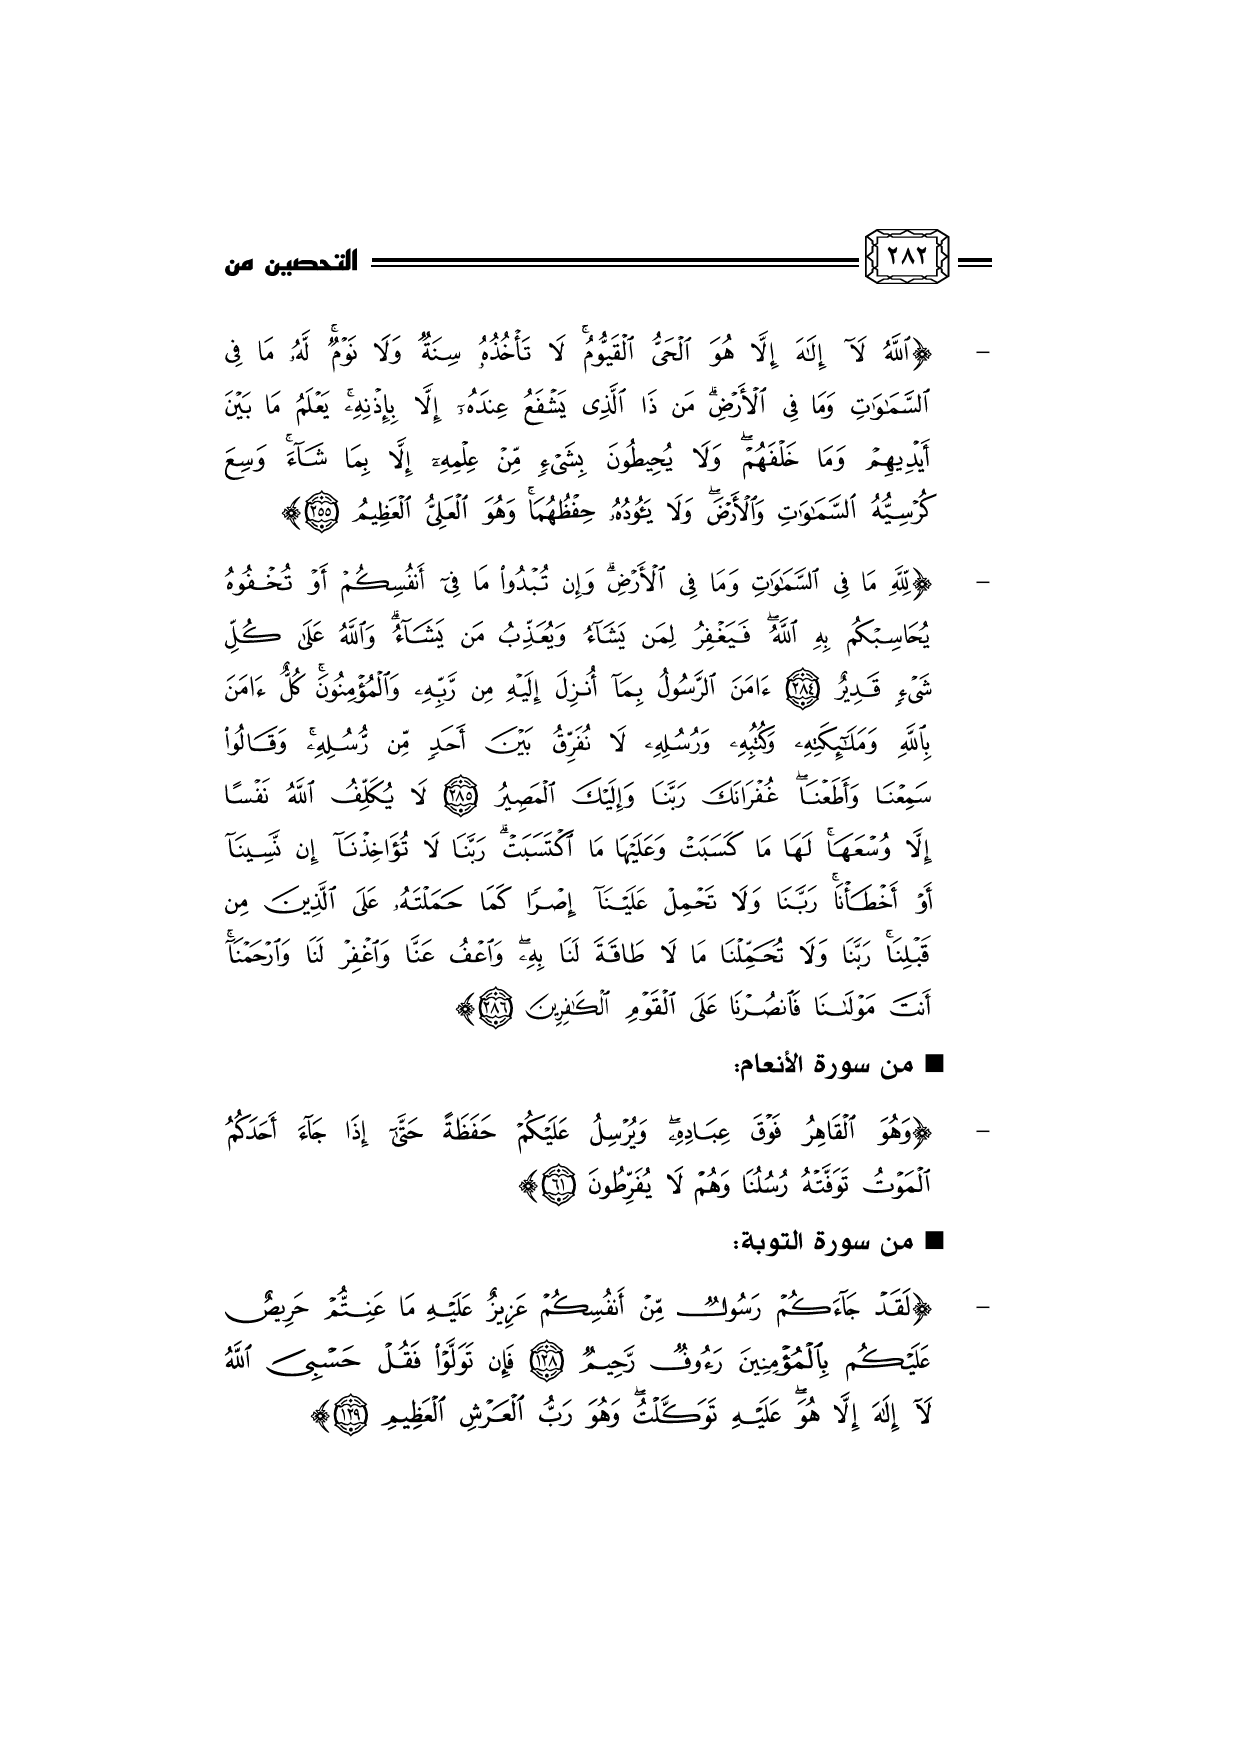 ٢٨٢ التحصين من
– ﴿ٱللَّهُ لَآ إِلَٰهَ إِلَّا هُوَ ٱلْحَىُّ ٱلْقَيُّومُ ۚ لَا تَأْخُذُهُۥ سِنَةٌ وَلَا نَوْمٌ ۚ لَّهُۥ مَا فِى
ٱلسَّمَٰوَٰتِ وَمَا فِى ٱلْأَرْضِ ۗ مَن ذَا ٱلَّذِى يَشْفَعُ عِندَهُۥٓ إِلَّا بِإِذْنِهِۦ ۚ يَعْلَمُ مَا بَيْنَ
أَيْدِيهِمْ وَمَا خَلْفَهُمْ ۖ وَلَا يُحِيطُونَ بِشَىْءٍ مِّنْ عِلْمِهِۦٓ إِلَّا بِمَا شَآءَ ۚ وَسِعَ
كُرْسِيُّهُ ٱلسَّمَٰوَٰتِ وَٱلْأَرْضَ ۖ وَلَا يَـُٔودُهُۥ حِفْظُهُمَا ۚ وَهُوَ ٱلْعَلِىُّ ٱلْعَظِيمُ ٢٥٥﴾
– ﴿لِلَّهِ مَا فِى ٱلسَّمَٰوَٰتِ وَمَا فِى ٱلْأَرْضِ ۗ وَإِن تُبْدُوا۟ مَا فِىٓ أَنفُسِكُمْ أَوْ تُخْفُوهُ
يُحَاسِبْكُم بِهِ ٱللَّهُ ۖ فَيَغْفِرُ لِمَن يَشَآءُ وَيُعَذِّبُ مَن يَشَآءُ ۗ وَٱللَّهُ عَلَىٰ كُلِّ
شَىْءٍ قَدِيرٌ ٢٨٤ ءَامَنَ ٱلرَّسُولُ بِمَآ أُنزِلَ إِلَيْهِ مِن رَّبِّهِۦ وَٱلْمُؤْمِنُونَ ۚ كُلٌّ ءَامَنَ
بِٱللَّهِ وَمَلَٰٓئِكَتِهِۦ وَكُتُبِهِۦ وَرُسُلِهِۦ لَا نُفَرِّقُ بَيْنَ أَحَدٍ مِّن رُّسُلِهِۦ ۚ وَقَالُوا۟
سَمِعْنَا وَأَطَعْنَا ۖ غُفْرَانَكَ رَبَّنَا وَإِلَيْكَ ٱلْمَصِيرُ ٢٨٥ لَا يُكَلِّفُ ٱللَّهُ نَفْسًا
إِلَّا وُسْعَهَا ۚ لَهَا مَا كَسَبَتْ وَعَلَيْهَا مَا ٱكْتَسَبَتْ ۗ رَبَّنَا لَا تُؤَاخِذْنَآ إِن نَّسِينَآ
أَوْ أَخْطَأْنَا ۚ رَبَّنَا وَلَا تَحْمِلْ عَلَيْنَآ إِصْرًا كَمَا حَمَلْتَهُۥ عَلَى ٱلَّذِينَ مِن
قَبْلِنَا ۚ رَبَّنَا وَلَا تُحَمِّلْنَا مَا لَا طَاقَةَ لَنَا بِهِۦ ۖ وَٱعْفُ عَنَّا وَٱغْفِرْ لَنَا وَٱرْحَمْنَآ ۚ
أَنتَ مَوْلَىٰنَا فَٱنصُرْنَا عَلَى ٱلْقَوْمِ ٱلْكَٰفِرِينَ ٢٨٦﴾
■ من سورة الأنعام:
– ﴿وَهُوَ ٱلْقَاهِرُ فَوْقَ عِبَادِهِۦ ۖ وَيُرْسِلُ عَلَيْكُمْ حَفَظَةً حَتَّىٰٓ إِذَا جَآءَ أَحَدَكُمُ
ٱلْمَوْتُ تَوَفَّتْهُ رُسُلُنَا وَهُمْ لَا يُفَرِّطُونَ ٦١﴾
■ من سورة التوبة:
– ﴿لَقَدْ جَآءَكُمْ رَسُولٌ مِّنْ أَنفُسِكُمْ عَزِيزٌ عَلَيْهِ مَا عَنِتُّمْ حَرِيصٌ
عَلَيْكُم بِٱلْمُؤْمِنِينَ رَءُوفٌ رَّحِيمٌ ١٢٨ فَإِن تَوَلَّوْا۟ فَقُلْ حَسْبِىَ ٱللَّهُ
لَآ إِلَٰهَ إِلَّا هُوَ ۖ عَلَيْهِ تَوَكَّلْتُ ۖ وَهُوَ رَبُّ ٱلْعَرْشِ ٱلْعَظِيمِ ١٢٩﴾